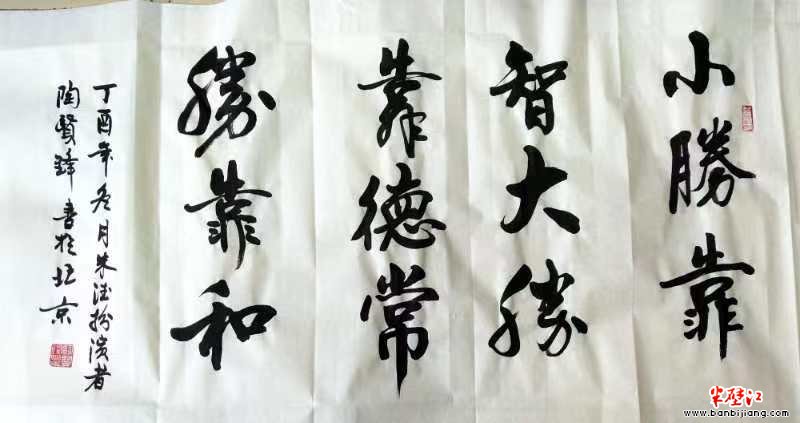 小勝靠
智大勝
靠德常
勝靠和
丁酉年冬月朱德扮演者
陶賢鋒書於北京
半壁江
www.banbijiang.com